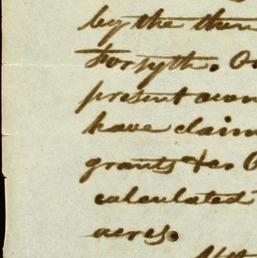 by the then
Forsyth. O
present own
have claim
grants &c
calculated
acres.